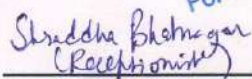 Shraddha Bhatnagar
(Receptionist)